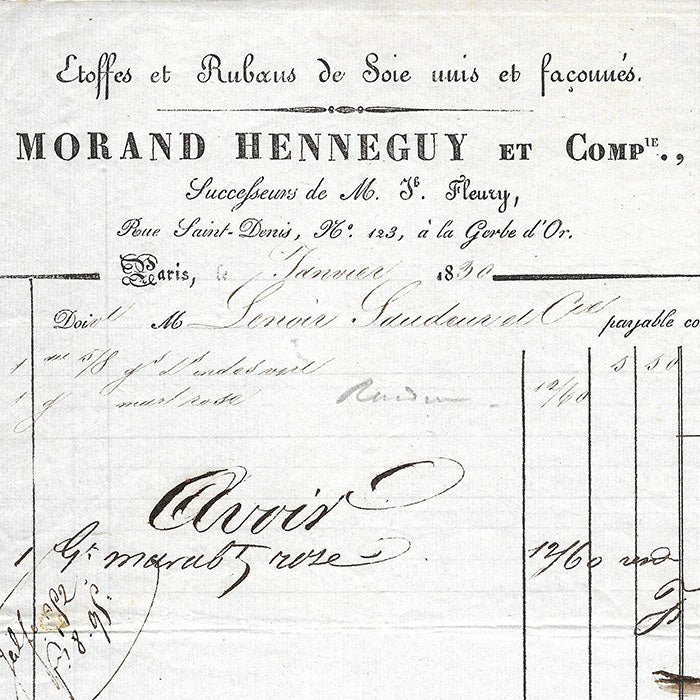 Etoffes et Rubans de Soie unis et façonnés.
MORAND HENNEGUY ET COMP^IE.,
Successeurs de M. J^h. Fleury,
Rue Saint-Denis, N°. 123, à la Gerbe d'Or.
Paris, le 7 Janvier 1830
Doivt M Lenoir et Cie payable co
1 5/8 g^r d'indes vert 5 50
1 g marb rose 12/60
Avoir
1 G^r marabt rose 12/60